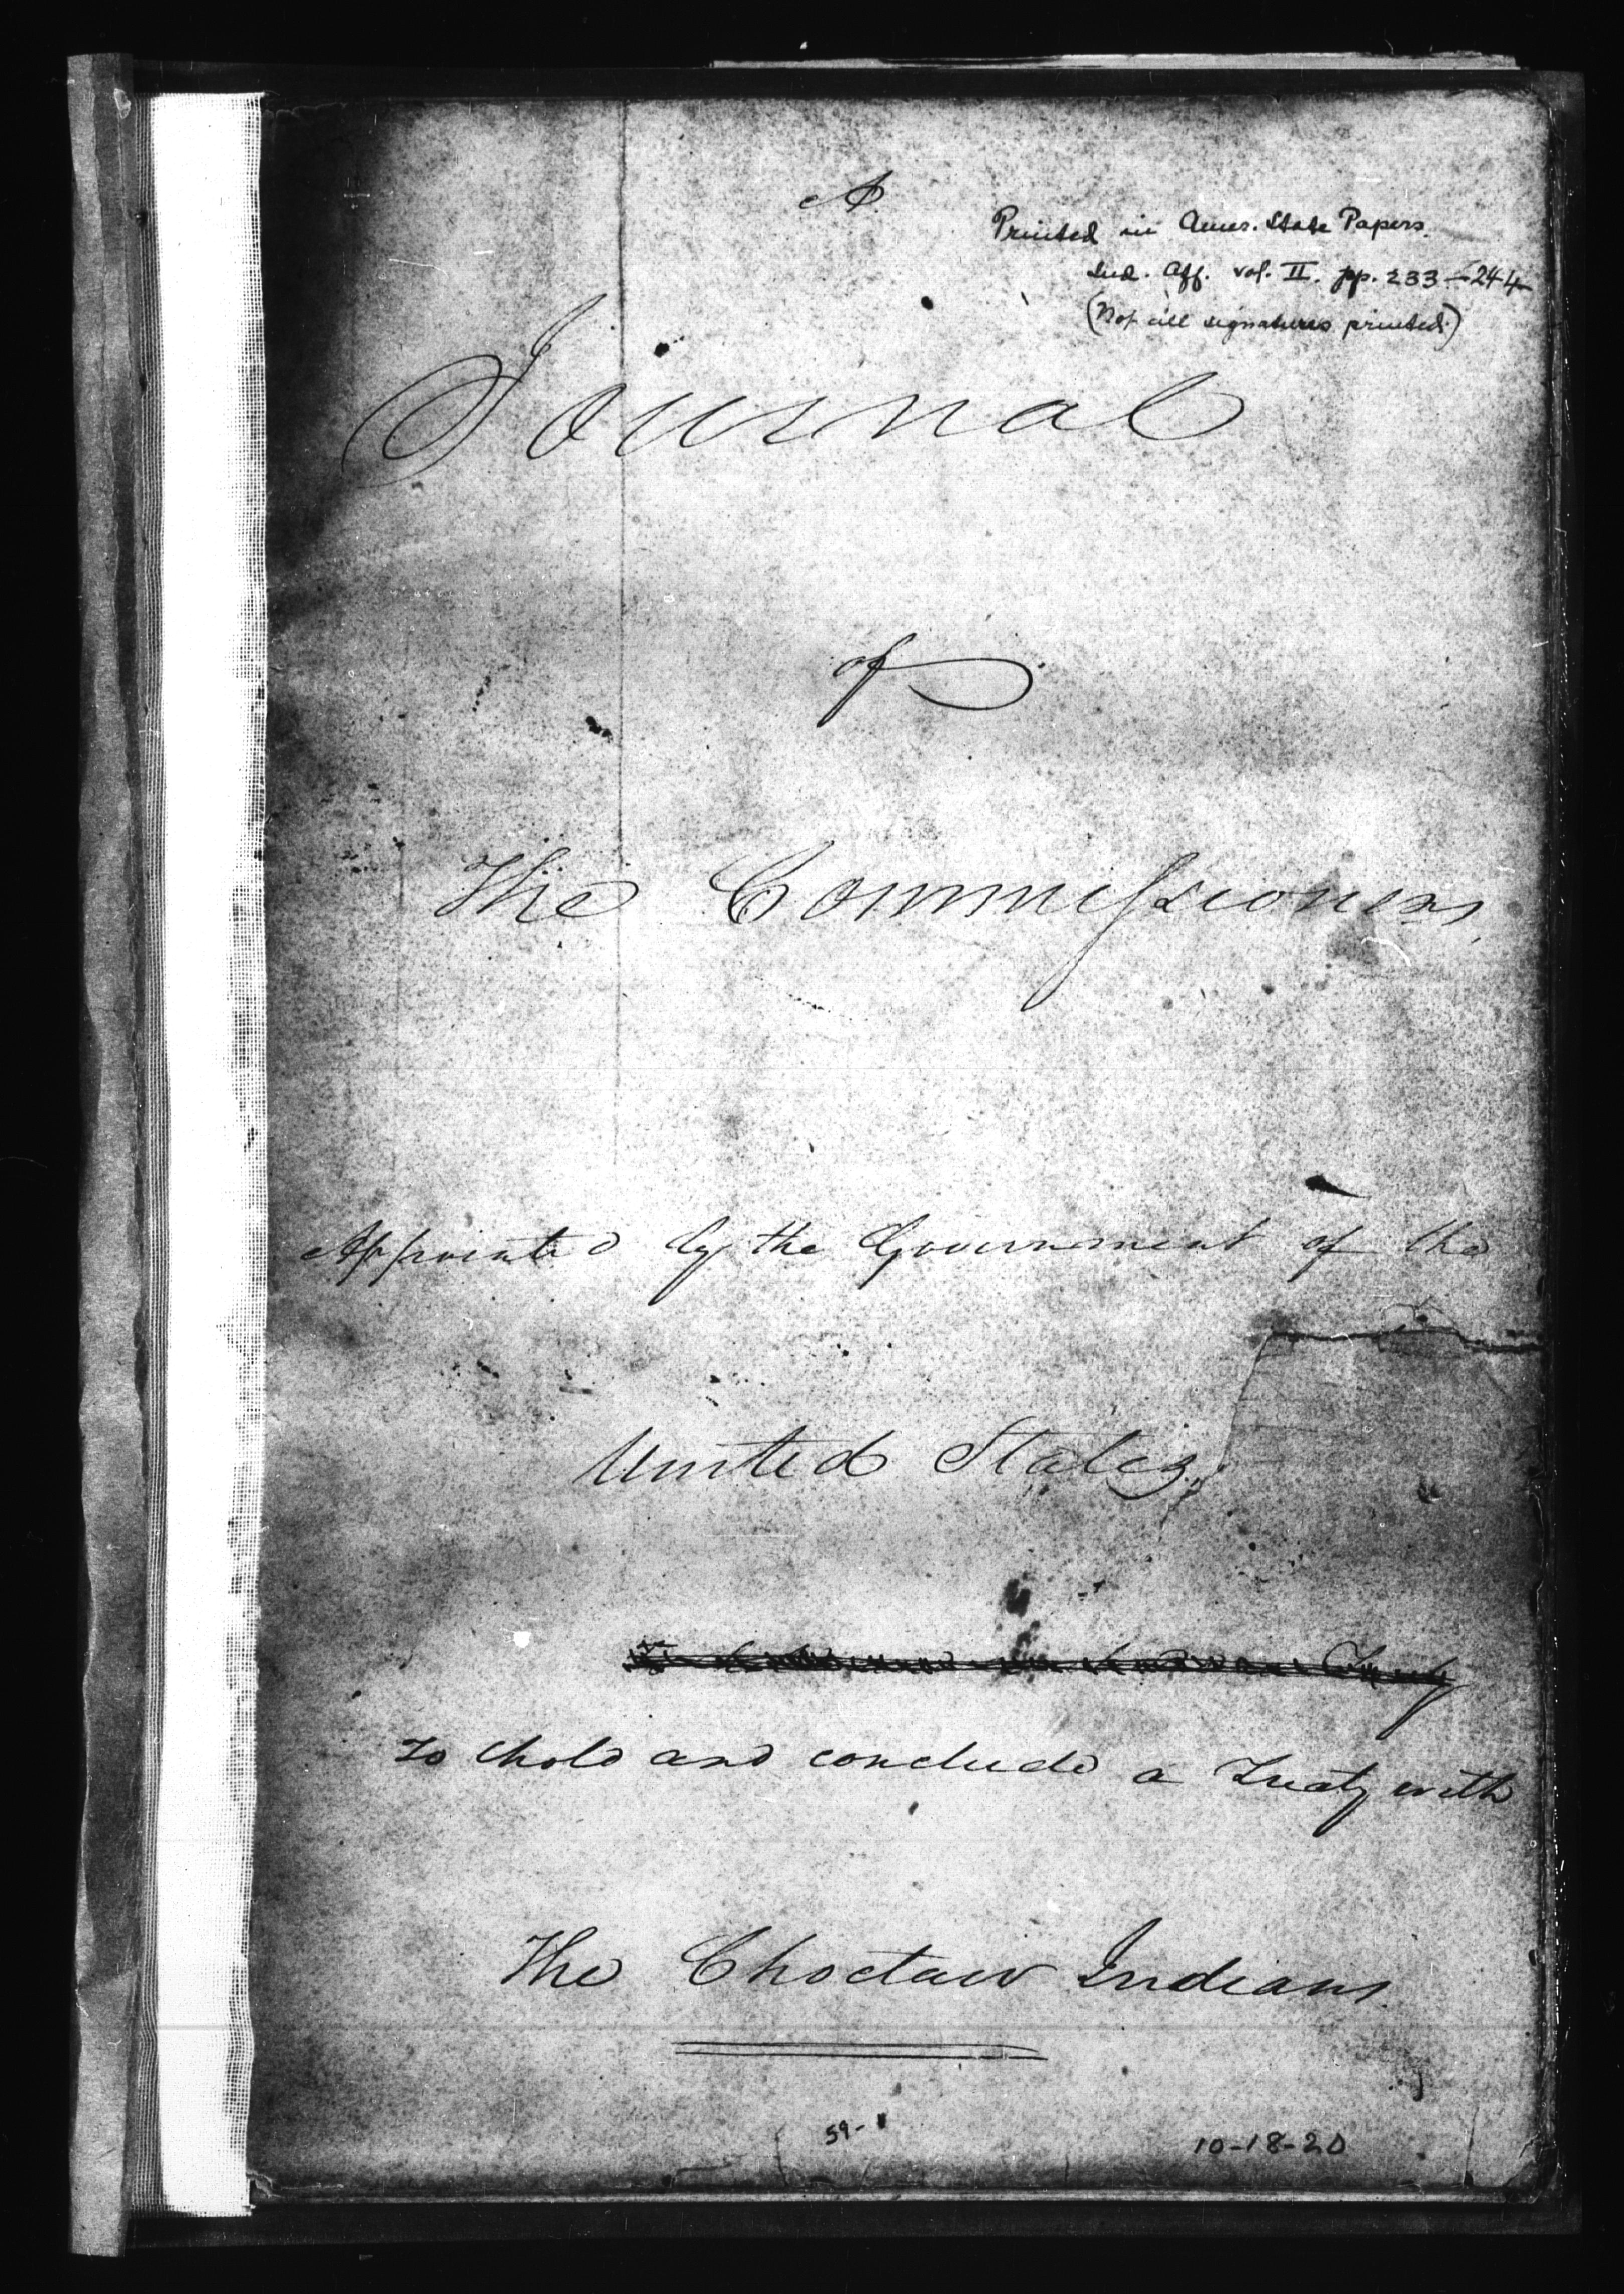 A
Printed in Amer. State Papers.
Ind. Aff. vol. II. pp. 233-244
(Not all signatures printed.)
Journal
of
The Commissioners,
Appointed by the Government of the
United States,
to hold and conclude a Treaty with
The Choctaw Indians
59-1
10-18-20